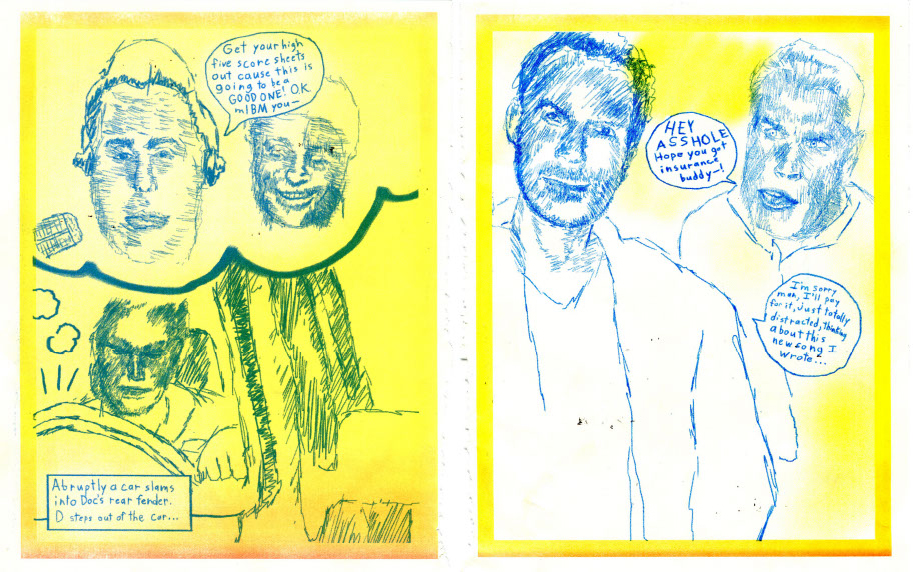 Get your high
five score sheets
out cause this is
going to be a
GOOD ONE! OK
mIBM you—
Abruptly a car slams
into Doc's rear fender.
D steps out of the car...
HEY
ASSHOLE
Hope you got
insurance
buddy—!
I'm sorry
man, I'll pay
for it, just totally
distracted, thinking
about this
new song I
wrote...